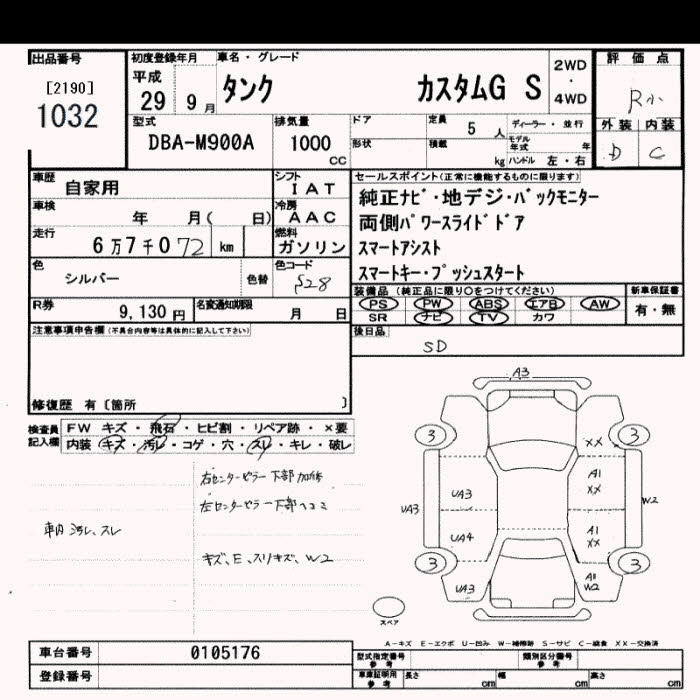 出品番号
[2190]
1032
初度登録年月
平成
29 9月
車名・グレード
タンク カスタムG S
2WD
・
4WD
評価点
R小
外装 内装
D C
型式
DBA-M900A
排気量
1000
cc
ドア
形状
定員
5人
積載
kg
ディーラー・並行
モデル年式 年
ハンドル 左・右
車歴
自家用
シフト
IAT
車検
年 月( 日)
冷房
AAC
走行
6万7千072 km
燃料
ガソリン
色
シルバー
色替
色コード
S28
R券
9,130円
名変通知期限
月 日
セールスポイント(正常に機能するものに限ります)
純正ナビ・地デジ・バックモニター
両側パワースライドドア
スマートアシスト
スマートキー・プッシュスタート
装備品(純正品に限り○をつけてください)
PS PW ABS エアB AW
SR ナビ TV カワ
新車保証書
有・無
後日品
SD
注意事項申告欄(不具合内容等は具体的に記入して下さい)
修復歴 有〔箇所 〕
検査員記入欄
FW キズ・飛石・ヒビ割・リペア跡・×要
内装 キズ・汚レ・コゲ・穴・スレ・キレ・破レ
右センターピラー下部加修
左センターピラー下部ヘコミ
車内汚レ、スレ
キズ、E、スリキズ、W2
A3
3
3
XX
UA3
A1
XX
UA3
W2
UA4
A1
XX
3
3
UA3
A1
W2
スペア
A-キズ E-エクボ U-凹み W-補修跡 S-サビ C-腐食 XX-交換済
車台番号
0105176
登録番号
型式指定番号
参考
類別区分番号
参考
車庫証明用
参考
長さ cm
幅 cm
高さ cm